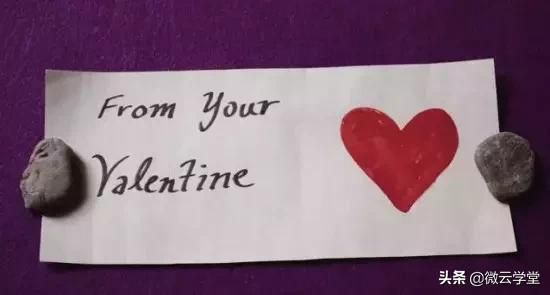 From Your
Valentine
头条 @微云学堂